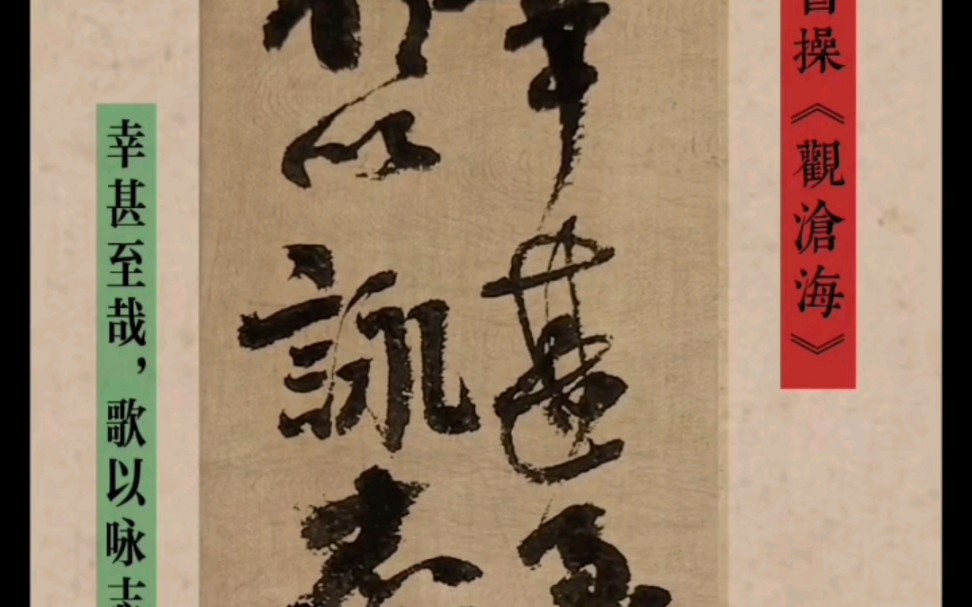 操《觀滄海》
幸甚至
以詠志
幸甚至哉,歌以咏志